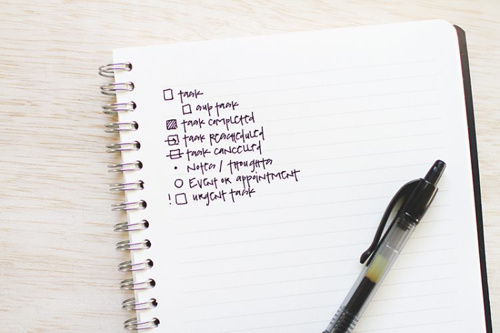 ☐ task
☐ sub task
▨ task completed
task rescheduled
task cancelled
• Notes / thoughts
○ Event or appointment
! ☐ urgent task